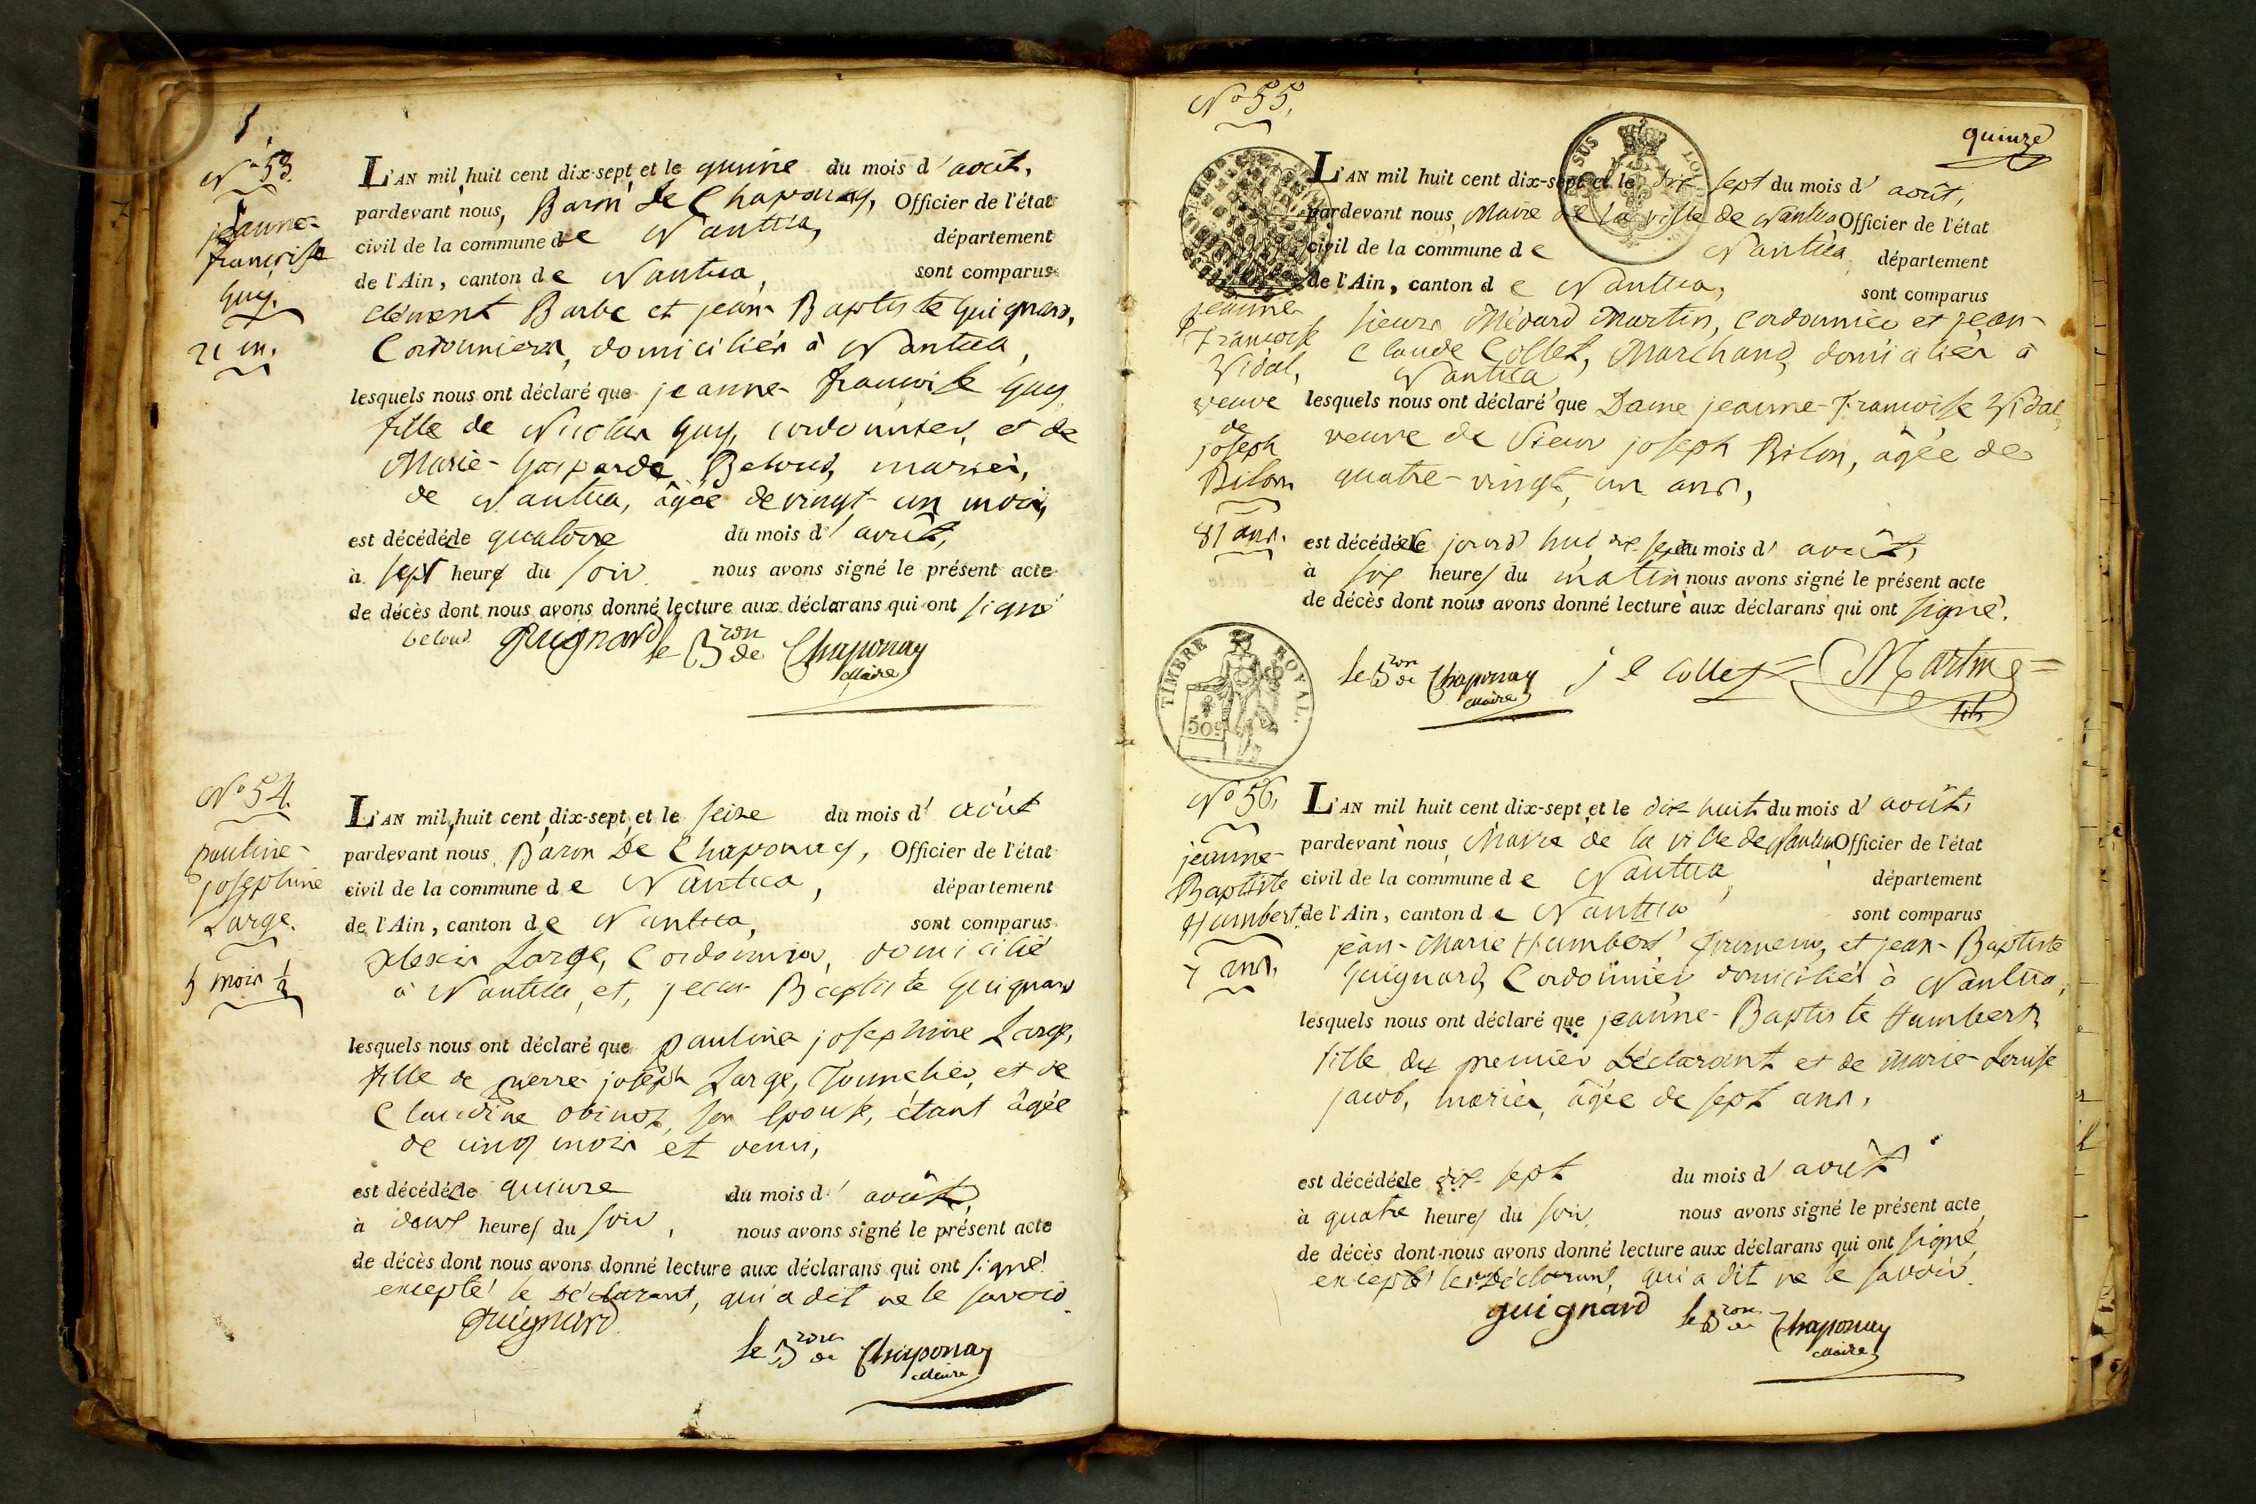 No 53.
jeanne-
françoise
Guy.
21 m.
L'AN mil huit cent dix-sept et le quinze du mois d'août,
pardevant nous, Baron De Chaponay, Officier de l'état
civil de la commune de Nantua, département
de l'Ain, canton de Nantua, sont comparus
clément Barbe et jean-Baptiste Guignard,
Cordonniers, domiciliés à Nantua,
lesquels nous ont déclaré que jeanne-françoise Guy
fille de Nicolas Guy, cordonnier, et de
Marie-Gasparde Beloud, mariés,
de Nantua, âgée de vingt-un mois,
est décédée le quatorze du mois d'août,
à sept heures du soir nous avons signé le présent acte
de décès dont nous avons donné lecture aux déclarans qui ont signé
Guignard le Bron de Chaponay
Maire
No 54.
pauline-
josephine
Large.
5 mois ½
L'AN mil huit cent dix-sept et le seize du mois d'août
pardevant nous Baron De Chaponay, Officier de l'état
civil de la commune de Nantua, département
de l'Ain, canton de Nantua, sont comparus
alexis Large, Cordonnier, domicilié
à Nantua, et, jean-Baptiste Guignard
lesquels nous ont déclaré que pauline josephine Large,
fille de pierre-joseph Large, Tonnelier, et de
Claudine son Epouse, étant âgée
de cinq mois et demi,
est décédée le quinze du mois d'août,
à deux heures du soir, nous avons signé le présent acte
de décès dont nous avons donné lecture aux déclarans qui ont signé
excepté le Déclarant, qui a dit ne le savoir.
Guignard
le Bron de Chaponay
Maire
No 55.
quinze
jeanne-
Françoise
Vidal,
veuve
de
joseph
Bilon
81 ans.
L'AN mil huit cent dix-sept et le dix sept du mois d'août,
pardevant nous Maire de la ville de Nantua Officier de l'état
civil de la commune de Nantua département
de l'Ain, canton de Nantua, sont comparus
sieurs Médard Martin, Cordonnier et jean-
Claude Collet, Marchand, domiciliés à
Nantua
lesquels nous ont déclaré que Dame jeanne-Françoise Vidal,
veuve de Sieur joseph Bilon, âgée de
quatre-vingt, un ans,
est décédée le jourd'hui dix sept du mois d'août,
à six heures du matin nous avons signé le présent acte
de décès dont nous avons donné lecture aux déclarans qui ont signé.
le Bron de Chaponay j C Collet Martin
Maire fils
TIMBRE ROYAL.
50c
No 56.
jeanne-
Baptiste
Humbert.
7 ans.
L'AN mil huit cent dix-sept et le dix huit du mois d'août,
pardevant nous Maire de la ville de Nantua Officier de l'état
civil de la commune de Nantua, département
de l'Ain, canton de Nantua sont comparus
jean-Marie Humbert et jean-Baptiste
Guignard, Cordonnier domiciliés à Nantua,
lesquels nous ont déclaré que jeanne-Baptiste Humbert,
fille du premier Déclarant et de Marie-Louise
jacob, mariés, âgée de sept ans,
est décédée le dix-sept du mois d'août
à quatre heures du soir, nous avons signé le présent acte
de décès dont nous avons donné lecture aux déclarans qui ont signé
excepté le 1er Déclarant, qui a dit ne le savoir.
guignard le Bron de Chaponay
Maire